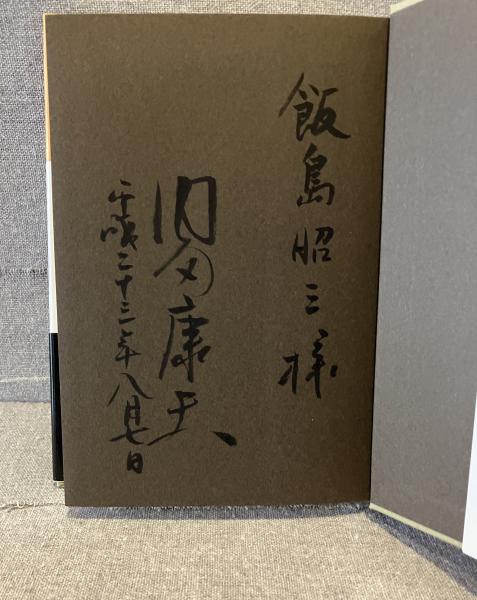 飯島昭三様
内田康夫
平成二十三年八月七日